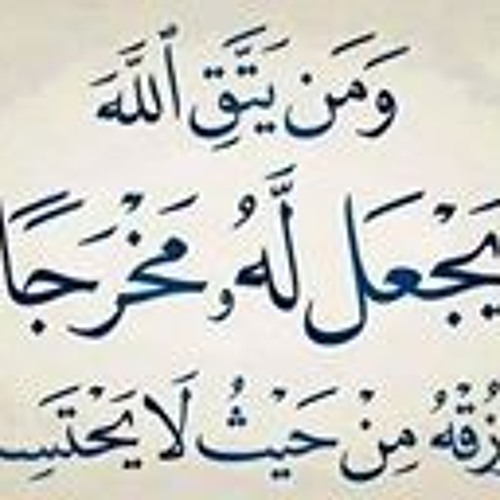 وَمَن يَتَّقِ ٱللَّهَ
يَجْعَل لَّهُۥ مَخْرَجًا
مِنْ حَيْثُ لَا